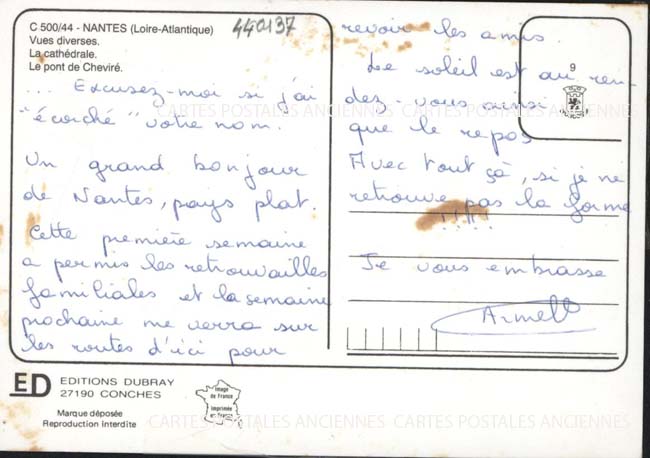 C 500/44 - NANTES (Loire-Atlantique)
Vues diverses.
La cathédrale.
Le pont de Cheviré.
440137
... Excusez-moi si j'ai
"écorché" votre nom.
Un grand bonjour
de Nantes, pays plat.
Cette première semaine
a permis les retrouvailles
familiales et la semaine
prochaine me verra sur
les routes d'ici pour
revoir les amis.
Le soleil est au ren-
dez-vous ainsi
que le repos
Avec tout çà, si je ne
retrouve pas la forme
!!!!!
Je vous embrasse
Armell
9
ED
EDITIONS DUBRAY
27190 CONCHES
Marque déposée
Reproduction interdite
Image
de France
Imprimée
en France
CARTES POSTALES ANCIENNES CARTES POSTALES ANCIENNES
CARTES POSTALES ANCIENNES CARTES POSTALES ANCIENNES